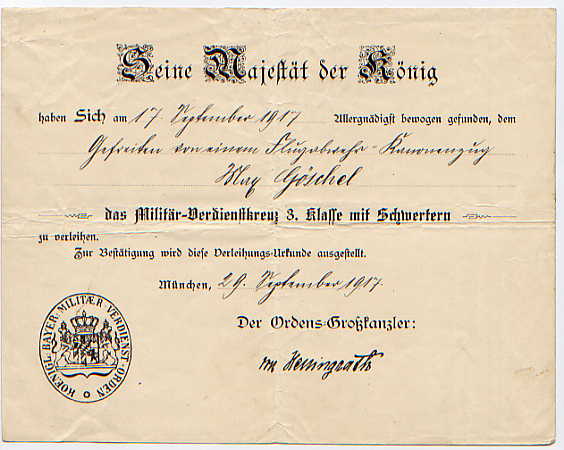 Seine Majestät der König
haben Sich am 17. September 1917 Allergnädigst bewogen gefunden, dem
Gefreiten von einem Flugabwehr-Kanonenzug
Max Göschel
das Militär-Verdienstkreuz 3. Klasse mit Schwertern
zu verleihen.
Zur Bestätigung wird diese Verleihungs-Urkunde ausgestellt.
München, 29. September 1917.
Der Ordens-Großkanzler:
KOENIGL. BAYER. MILITÆR-VERDIENST-ORDEN